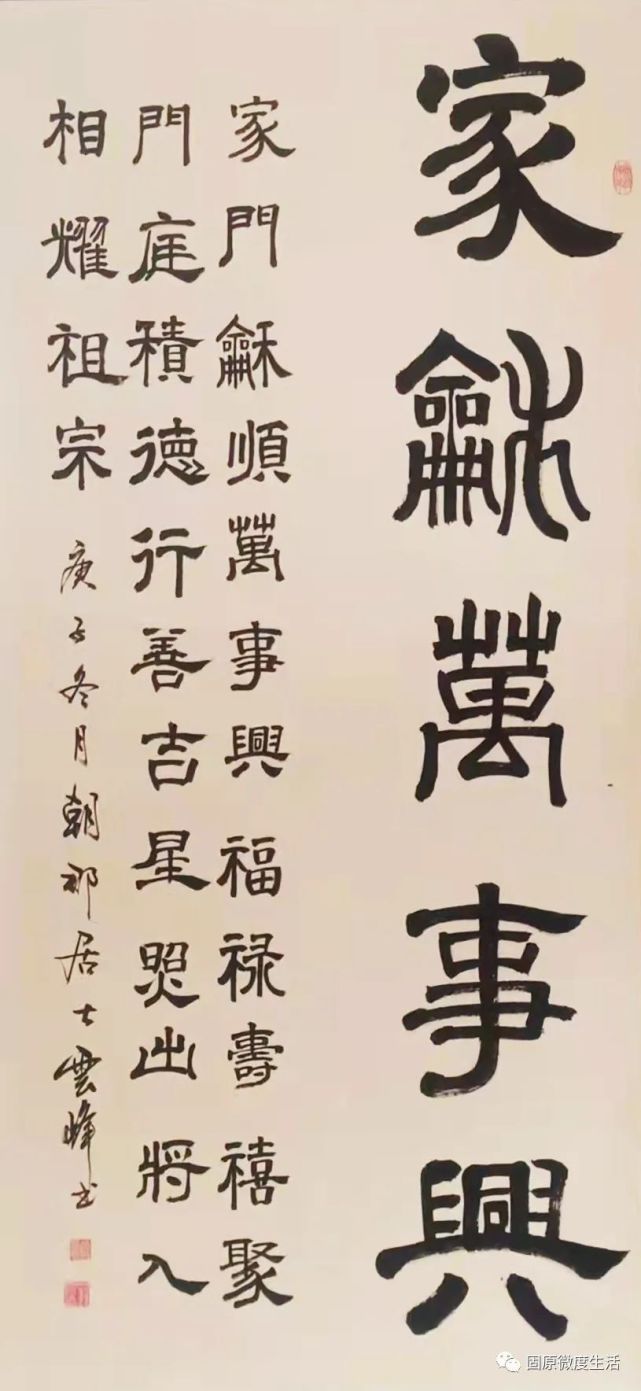 家龢萬事興
家門龢順萬事興福禄壽禧聚
門庭積德行善吉星照出將入
相耀祖宗
庚子冬月朝那居士雲峰書
固原微度生活